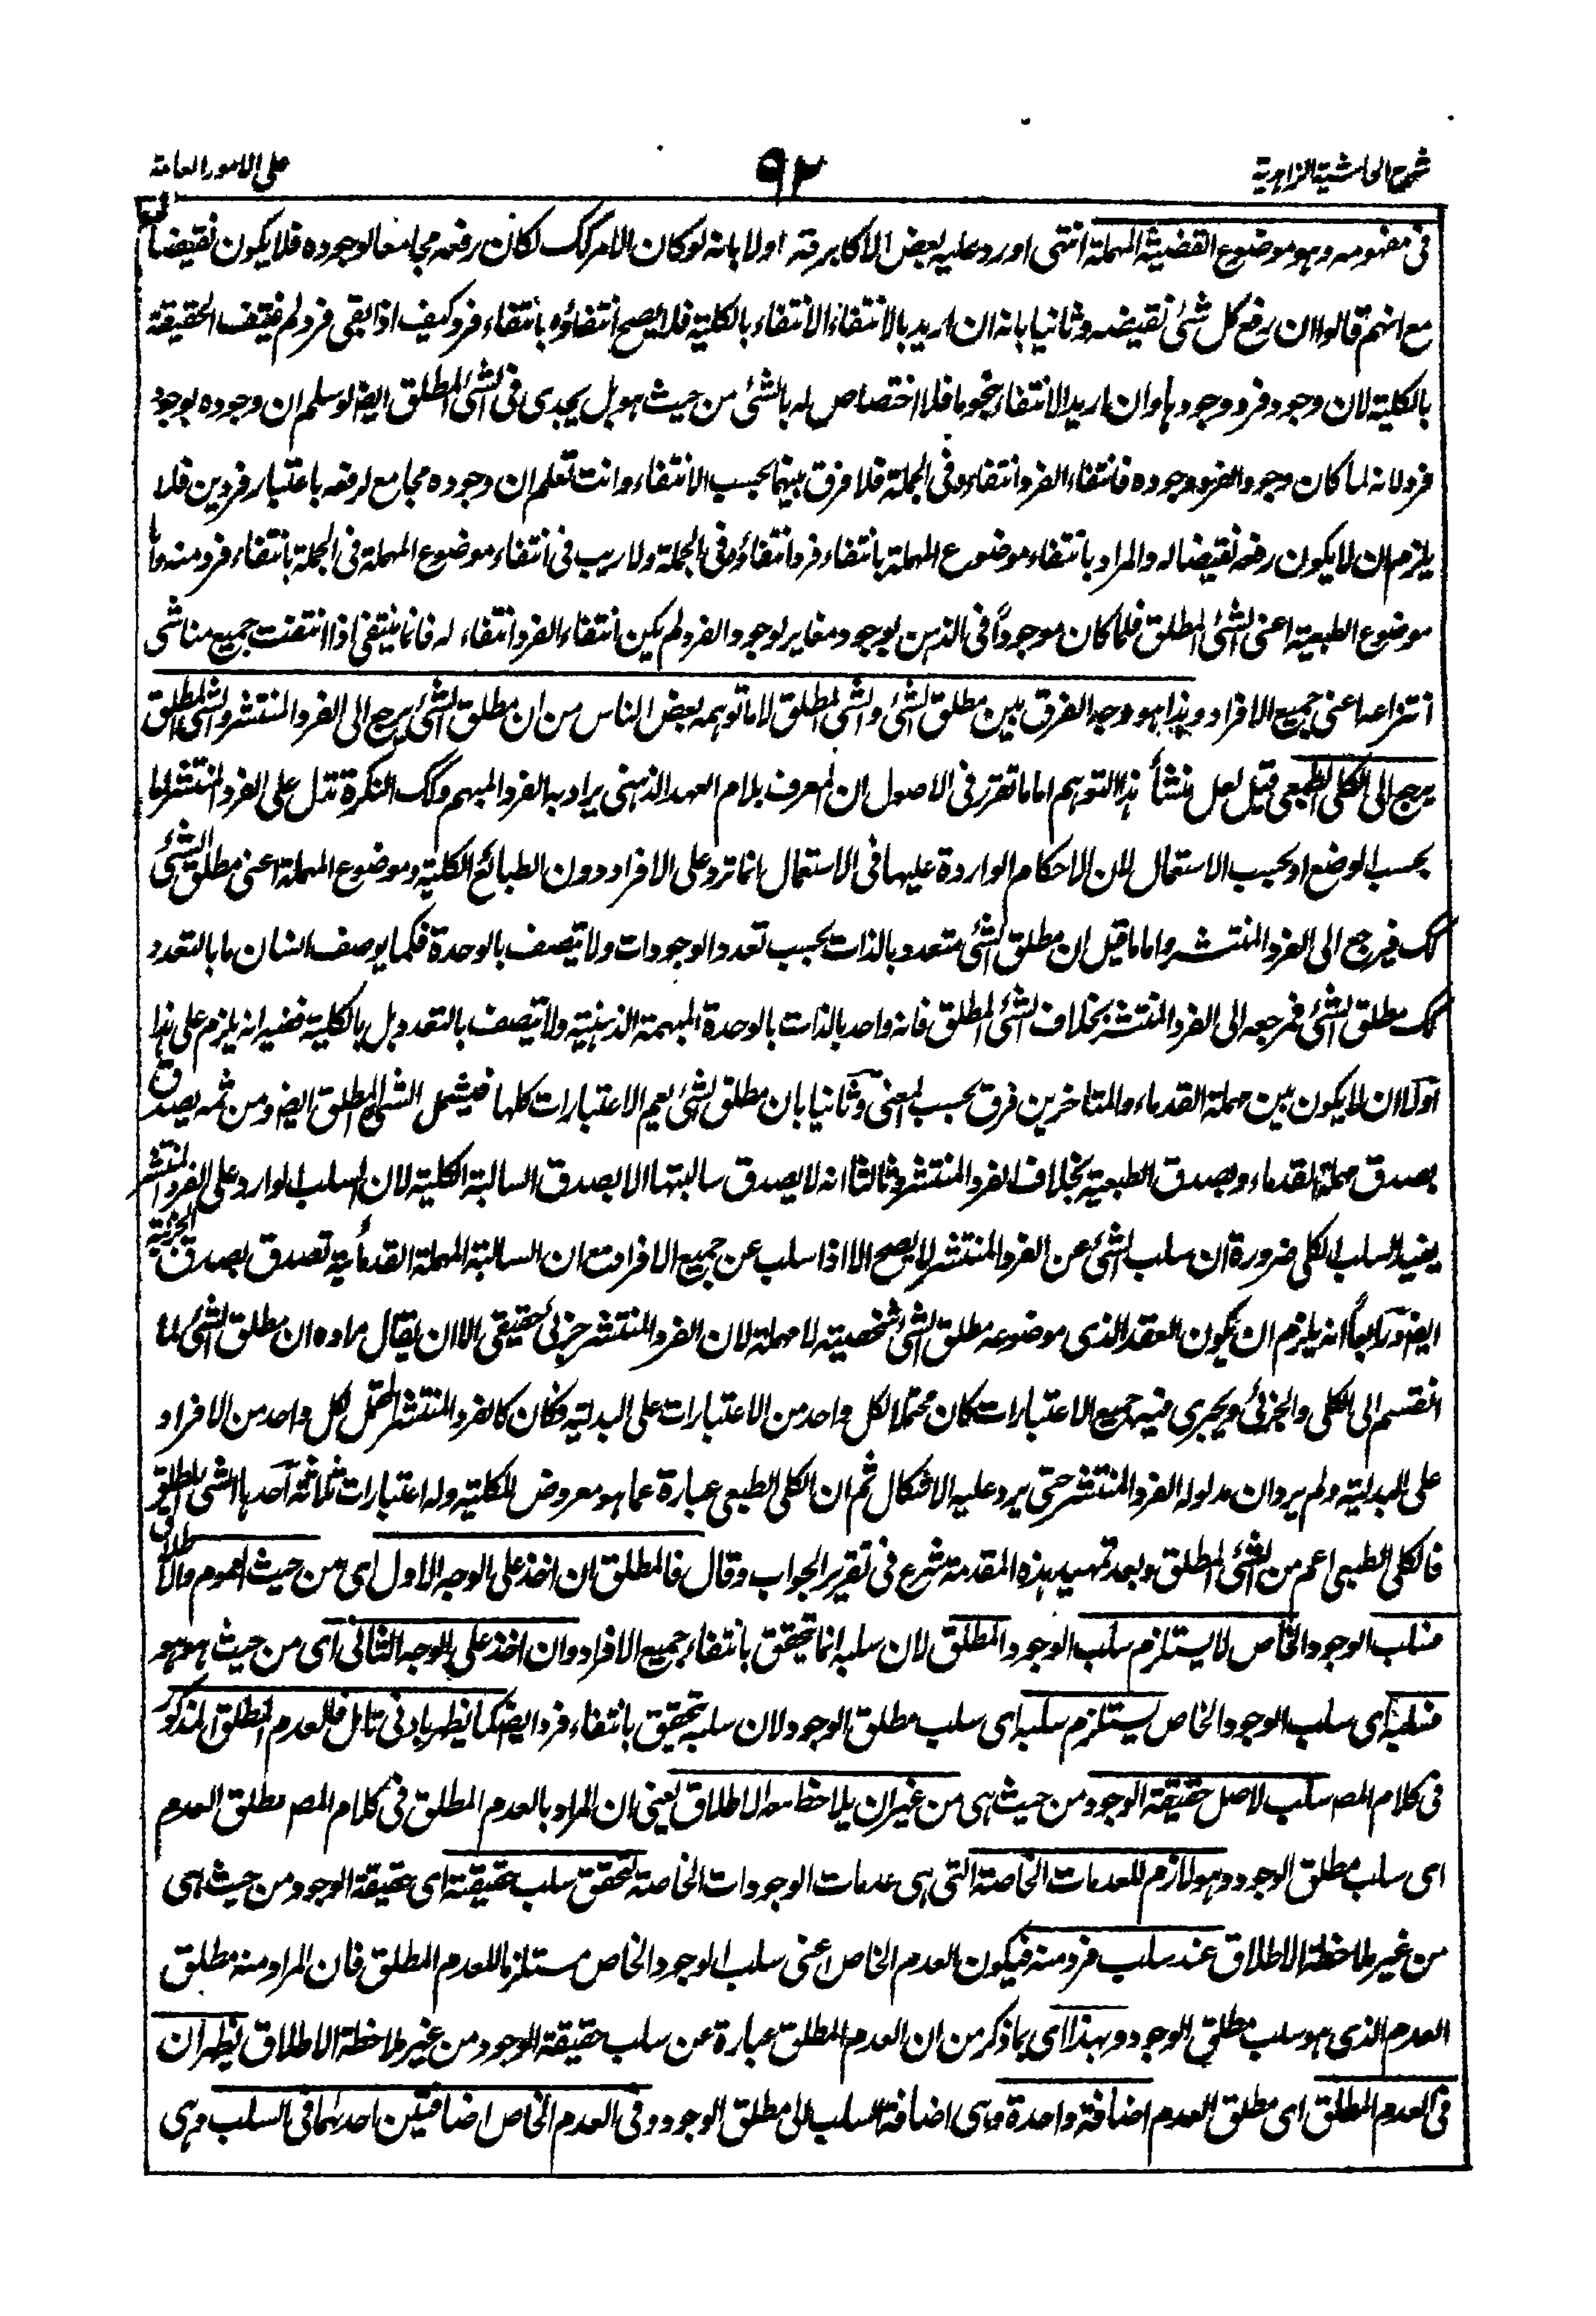 شرح الحاشية الزاهدية
٩٢
على الامور العامة
فى مفهومه وهو موضوع القضية المهملة انتهى اورد عليه بعض الاكابر قه اولا بانه لو كان الامر كك لكان رفعه مجامعا لوجوده فلا يكون نقيضا
مع انهم قالوا ان رفع كل شئ نقيضه وثانيا بانه ان اريد بالانتفاء الانتفاء بالكلية فلا يصح انتفاؤه بانتفاء فرد كيف اذا بقى فرد لم ينتف الحقيقة
بالكلية لان وجود فرد وجودها وان اريد الانتفاء بنحو ما فلا اختصاص له بالشئ من حيث هو بل يجدى فى الشئ المطلق ايضا لو سلم ان وجوده بوجود
فرد لانه لما كان وجود الفرد وجوده فانتفاء الفرد انتفاءه فى الجملة فلا فرق بينهما بحسب الانتفاء وانت تعلم ان وجوده مجامع لرفعه باعتبار فردين فلا
يلزم ان لا يكون رفعه نقيضا له والمراد بانتفاء موضوع المهملة بانتفاء فرد انتفاؤه فى الجملة ولا ريب فى انتفاء موضوع المهملة فى الجملة بانتفاء فرد منه واما
موضوع الطبعية اعنى الشئ المطلق فلما كان موجوداً فى الذهن بوجود مغاير لوجود الفرد لم يكن انتفاء الفرد انتفاء له فانما ينتفى اذا انتفت جميع مناشى
انتزاعه اعنى جميع الافراد وهذا هو وجه الفرق بين مطلق الشئ والشئ المطلق لا ما توهمه بعض الناس من ان مطلق الشئ يرجع الى الفرد المنتشر والشئ المطلق
يرجع الى الكلى الطبعى قيل لعل منشأ هذا التوهم اما ما تقرر فى الاصول ان المعرف بلام العهد الذهنى يراد به الفرد المبهم وكك النكرة تدل على الفرد المنتشر اما
بحسب الوضع او بحسب الاستعمال لان الاحكام الواردة عليها فى الاستعمال انما ترد على الافراد دون الطبائع الكلية وموضوع المهملة اعنى مطلق الشئ
كك فيرجع الى الفرد المنتشر واما ما قيل ان مطلق الشئ متعدد بالذات بحسب تعدد الوجودات ولا يتصف بالوحدة فكما يوصف انسان ما بالتعدد
كك مطلق الشئ فمرجعه الى الفرد المنتشر بخلاف الشئ المطلق فانه واحد بالذات بالوحدة المبهمة الذهنية ولا يتصف بالتعدد بل بالكلية ففيه انه يلزم على هذا
اولا ان لا يكون بين مهملة القدماء والمتاخرين فرق بحسب المعنى وثانيا بان مطلق الشئ يعم الاعتبارات كلها فيشمل الشئ المطلق ايضا ومن ثمه يصدق
بصدق مهملة القدماء وبصدق الطبعية بخلاف الفرد المنتشر وثالثا انه لا يصدق سالبتها الا بصدق السالبة الكلية لان السلب الوارد على الفرد المنتشر
يفيد السلب الكلى ضرورة ان سلب الشئ عن الفرد المنتشر لا يصح الا اذا سلب عن جميع الافراد مع ان السالبة المهملة القدمائية تصدق بصدق الجزئية
ايضا ورابعا انه يلزم ان يكون العقد الذى موضوعه مطلق الشئ شخصية لا مهملة لان الفرد المنتشر جزئى حقيقى الا ان يقال مراده ان مطلق الشئ لما
انقسم الى الكلى والجزئى ويجرى فيه جميع الاعتبارات كان محتملا لكل واحد من الاعتبارات على البدلية فكان كالفرد المنتشر المحتمل لكل واحد من الافراد
على البدلية ولم يرد ان مدلوله الفرد المنتشر حتى يرد عليه الاشكال ثم ان الكلى الطبعى عبارة عما هو معروض للكلية وله اعتبارات ثلاثة احدها الشئ المطلق
فالكلى الطبعى اعم من الشئ المطلق وبعد تمهيد هذه المقدمة شرع فى تقرير الجواب وقال فالمطلق ان اخذ على الوجه الاول اى من حيث العموم والاطلاق
فسلب الوجود الخاص لا يستلزم سلب الوجود المطلق لان سلبه انما يتحقق بانتفاء جميع الافراد وان اخذ على الوجه الثانى اى من حيث هو هو
فسلبه اى سلب الوجود الخاص يستلزم سلبه اى سلب مطلق الوجود لان سلبه يتحقق بانتفاء فرد ايضا كما يظهر بادنى تامل فالعدم المطلق المذكور
فى كلام المص سلب لاصل حقيقة الوجود من حيث هى من غير ان يلاحظ معه الاطلاق يعنى ان المراد بالعدم المطلق فى كلام المص مطلق العدم
اى سلب مطلق الوجود وهو لازم للعدمات الخاصة التى هى عدمات الوجودات الخاصة لتحقق سلب حقيقته اى حقيقة الوجود من حيث هى
من غير ملاحظة الاطلاق عند سلب فرد منه فيكون العدم الخاص اعنى سلب الوجود الخاص مستلزما للعدم المطلق فان المراد منه مطلق
العدم الذى هو سلب مطلق الوجود وبهذا اى بما ذكر من ان العدم المطلق عبارة عن سلب حقيقة الوجود من غير ملاحظة الاطلاق يظهر ان
فى العدم المطلق اى مطلق العدم اضافة واحدة وهى اضافة السلب الى مطلق الوجود وفى العدم الخاص اضافتين احدهما فى السلب وهى